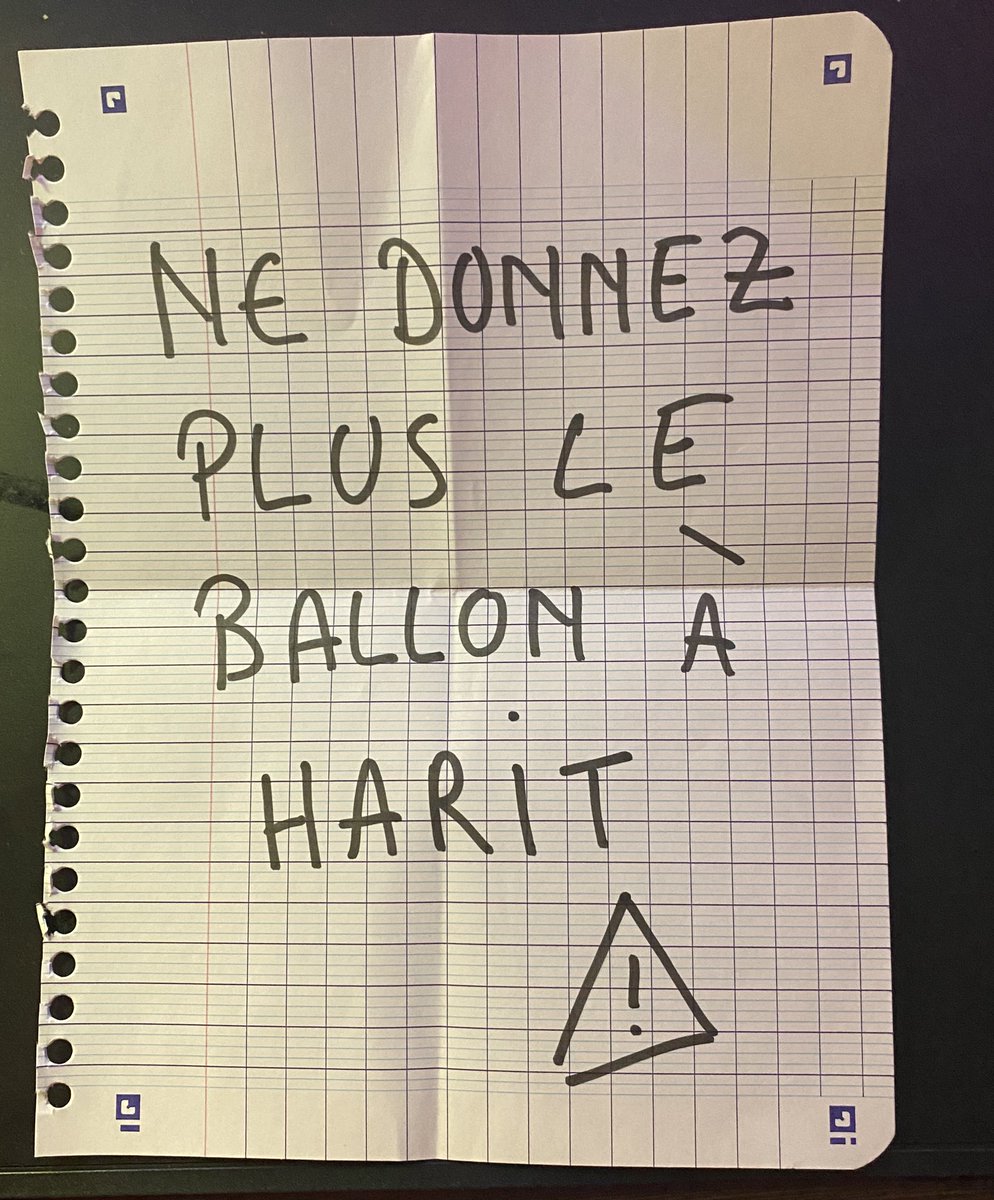 NE DONNEZ
PLUS LE
BALLON À
HARiT
!